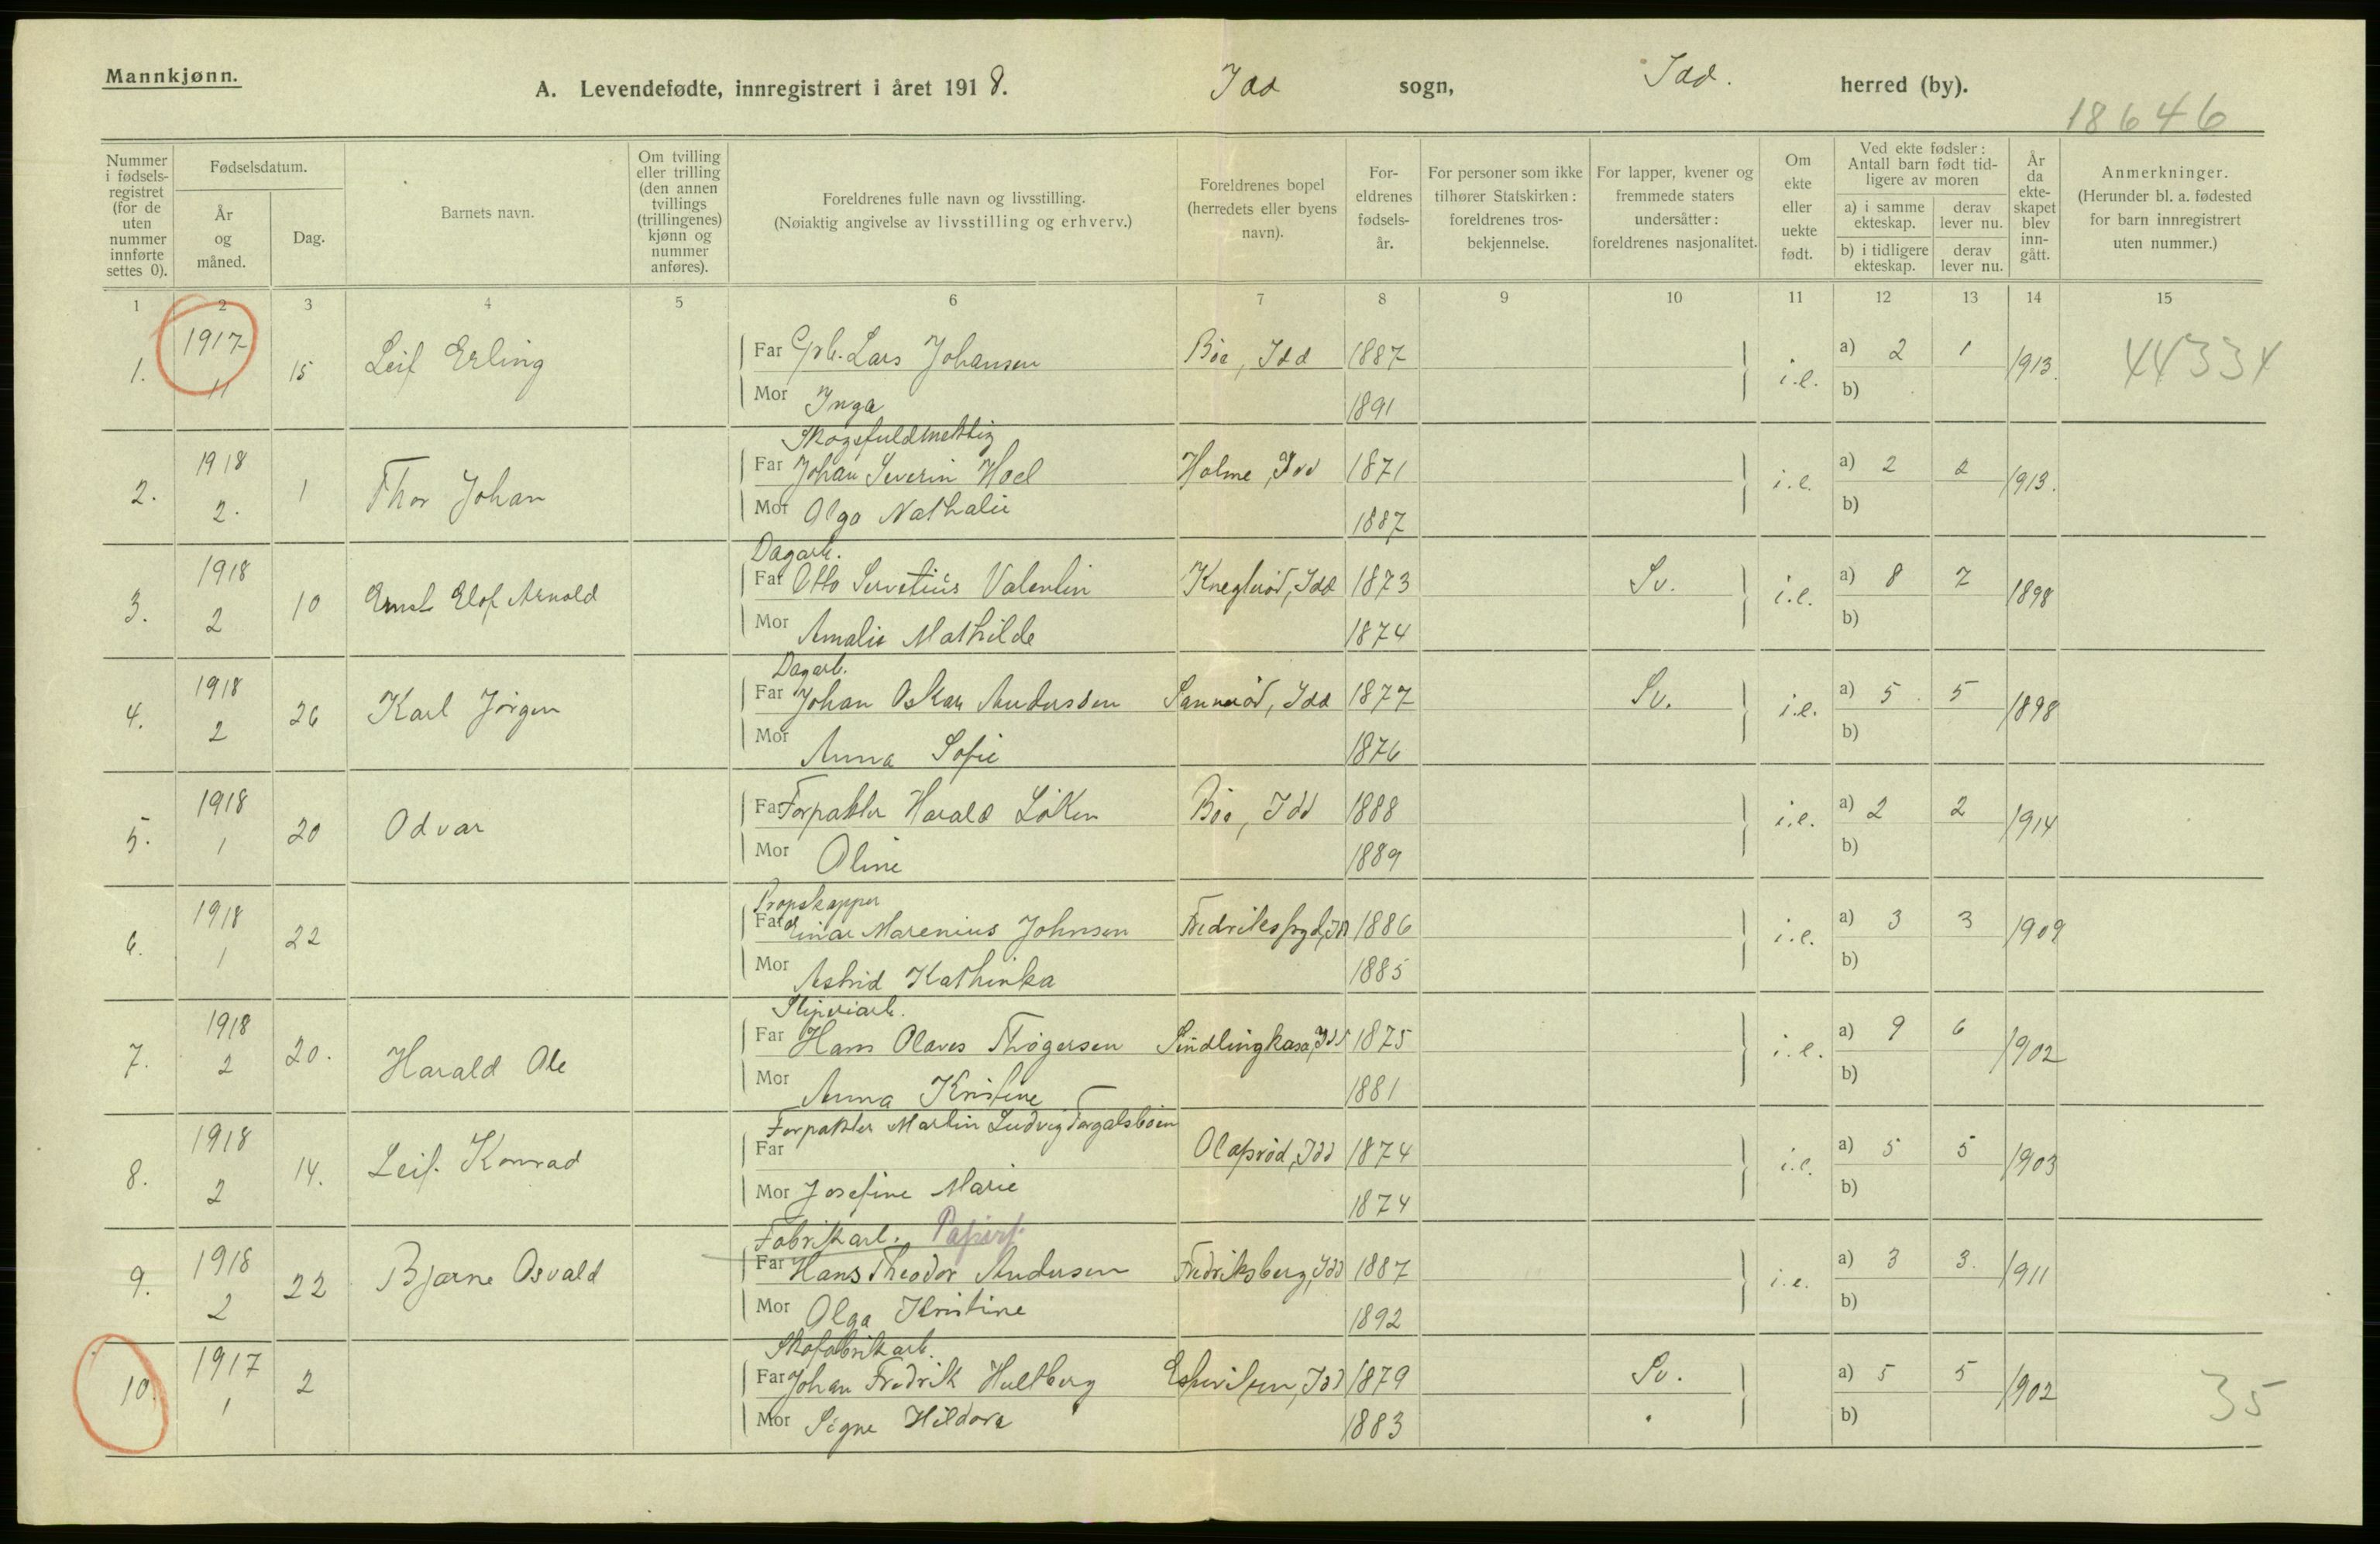 Mannkjønn.
A. Levendefødte, innregistrert i året 1918. Idd sogn, Idd. herred (by).
18646
Nummer i fødsels-registret (for de uten nummer innførte settes 0).
Fødselsdatum.
År og måned.
Dag.
Barnets navn.
Om tvilling eller trilling (den annen tvillings (trillingenes) kjønn og nummer anføres).
Foreldrenes fulle navn og livsstilling.
(Nøiaktig angivelse av livsstilling og erhverv.)
Foreldrenes bopel (herredets eller byens navn).
For-eldrenes fødsels-år.
For personer som ikke tilhører Statskirken: foreldrenes tros-bekjennelse.
For lapper, kvener og fremmede staters undersåtter: foreldrenes nasjonalitet.
Om ekte eller uekte født.
Ved ekte fødsler: Antall barn født tid-ligere av moren
a) i samme ekteskap. derav lever nu.
b) i tidligere ekteskap. derav lever nu.
År da ekte-skapet blev inn-gått.
Anmerkninger.
(Herunder bl. a. fødested for barn innregistrert uten nummer.)
1 2 3 4 5 6 7 8 9 10 11 12 13 14 15
1. 1917 11 15 Leif Erling Far Lars Johansen Bøe, Idd 1887 i.e. a) 2 1 1913. 44334
Mor Inga 1891 b)
Skogsfuldmektig
2. 1918 2. 1 Thor Johan Far Johan Severin Hoel Holme, Idd 1871 i.e. a) 2 2 1913.
Mor Olga Nathalie 1887 b)
Dagarb.
3. 1918 2 10 Ernst Elof Arnold Far Otto Servetius Valentin Idd 1873 Sv. i.e. a) 8 7 1898
Mor Amalie Mathilde 1874 b)
Dagarb.
4. 1918 2 26 Karl Jørgen Far Johan Oskar Anderssen Sannerød, Idd 1877 Sv. i.e. a) 5 5 1898
Mor Anna Sofie 1876 b)
5. 1918 1 20 Odvar Far Forpakter Harald Løken Bøe, Idd 1888 i.e. a) 2 2 1914
Mor Oline 1889 b)
Propskapper
6. 1918 1 22 Far Einar Marenius Johnsen Idd 1886 i.e. a) 3 3 1909
Mor Astrid Kathinka 1885 b)
Sliperiarb.
7. 1918 2 20. Harald Ole Far Hans Olaves Thøgersen Idd 1875 i.e. a) 9 6 1902
Mor Anna Kristine 1881 b)
Forpakter Martin Ludvig Torgalsbøen
8. 1918 2 14. Leif Konrad Far Olafsrød, Idd 1874 i.e. a) 5 5 1903
Mor Josefine Marie 1874 b)
Fabrikarb. Papirf.
9. 1918 2 22 Bjarne Osvald Far Hans Theodor Andersen Fredriksberg, Idd 1887 i.e. a) 3 3. 1911
Mor Olga Kristine 1892 b)
Skofabrikarb.
10. 1917 1 2 Far Johan Fredrik Hultberg Idd 1879 Sv. a) 5 5 1902 35
Mor Signe Hildora 1883 b)